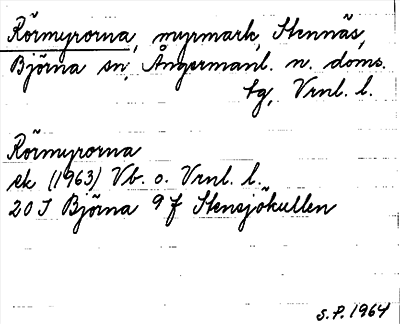 Rörmyrorna, myrmark, Stennäs,
Björna sn, Ångermanl. n. doms.
tg, Vrnl. l.
Rörmyrorna
ek (1963) Vb. o. Vrnl. l.
20 J Björna 9 f Stensjökullen
S.P. 1964